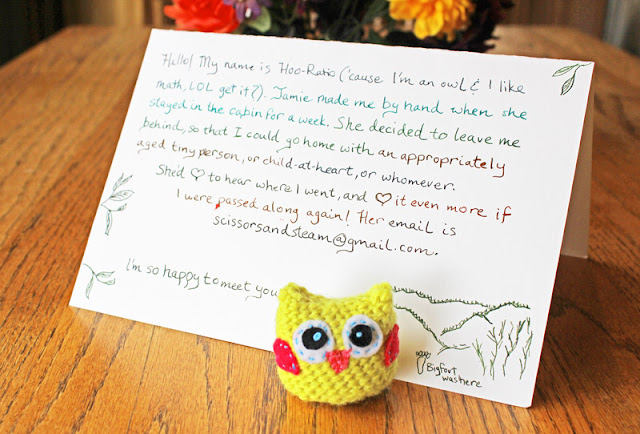 Hello! My name is Hoo-Ratio ('cause I'm an owl & I like
math, LOL get it?). Jamie made me by hand when she
stayed in the cabin for a week. She decided to leave me
behind, so that I could go home with an appropriately
aged tiny person, or child-at-heart, or whomever.
She'd ♡ to hear where I went, and ♡ it even more if
I were passed along again! Her email is
scissorsandsteam@gmail.com.
I'm so happy to meet you
Bigfoot
was here